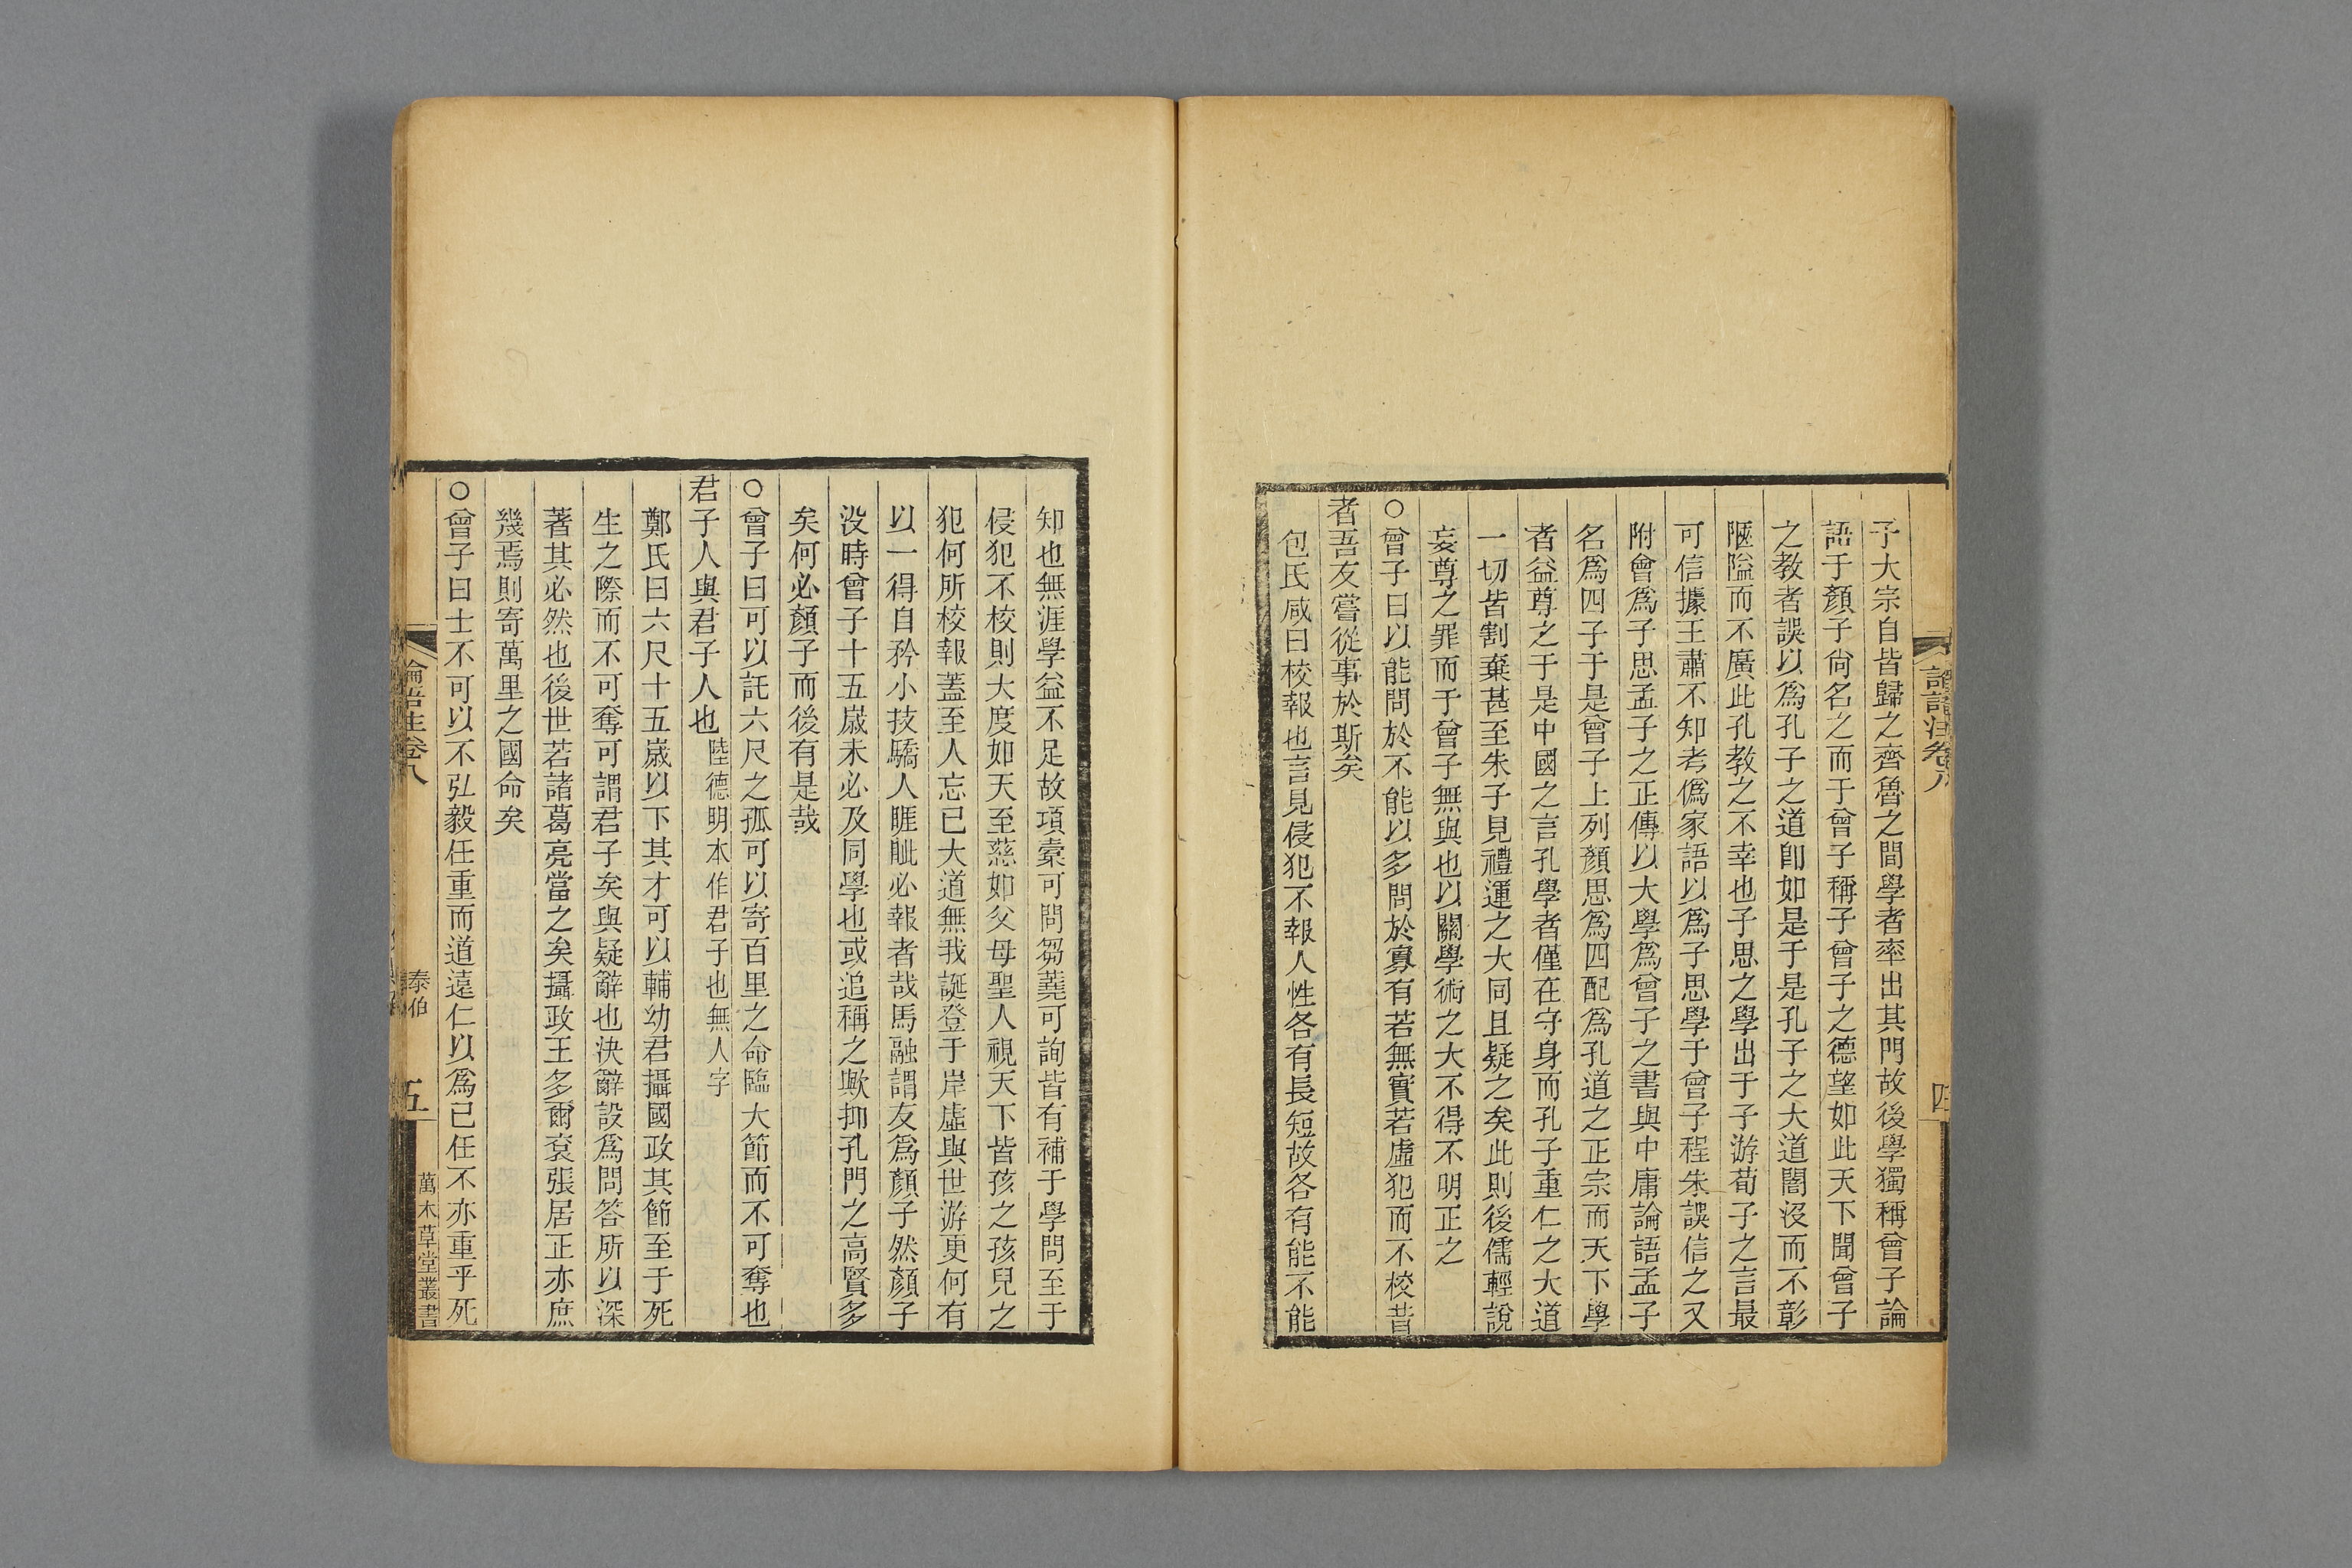 論語注卷八
四
子大宗自皆歸之齊魯之間學者率出其門故後學獨稱曾子論
語于顏子尙名之而于曾子稱子曾子之德望如此天下聞曾子
之教者誤以爲孔子之道卽如是于是孔子之大道闇沒而不彰
陋隘而不廣此孔教之不幸也子思之學出于子游荀子之言最
可信據王肅不知考僞家語以爲子思學于曾子程朱誤信之又
附會爲子思孟子之正傳以大學爲曾子之書與中庸論語孟子
名爲四子于是曾子上列顏思爲四配爲孔道之正宗而天下學
者益尊之于是中國之言孔學者僅在守身而孔子重仁之大道
一切皆割棄甚至朱子見禮運之大同且疑之矣此則後儒輕說
妄尊之罪而于曾子無與也以關學術之大不得不明正之
○曾子曰以能問於不能以多問於寡有若無實若虛犯而不校昔
者吾友嘗從事於斯矣
包氏咸曰校報也言見侵犯不報人性各有長短故各有能不能
知也無涯學益不足故項橐可問芻蕘可詢皆有補于學問至于
侵犯不校則大度如天至慈如父母聖人視天下皆孩之孩兒之
犯何所校報蓋至人忘己大道無我誕登于岸虛與世游更何有
以一得自矜小技驕人睚眦必報者哉馬融謂友爲顏子然顏子
沒時曾子十五歲未必及同學也或追稱之歟抑孔門之高賢多
矣何必顏子而後有是哉
○曾子曰可以託六尺之孤可以寄百里之命臨大節而不可奪也
君子人與君子人也陸德明本作君子也無人字
鄭氏曰六尺十五歲以下其才可以輔幼君攝國政其節至于死
生之際而不可奪可謂君子矣與疑辭也決辭設爲問答所以深
著其必然也後世若諸葛亮當之矣攝政王多爾袞張居正亦庶
幾焉則寄萬里之國命矣
○曾子曰士不可以不弘毅任重而道遠仁以爲己任不亦重乎死
論語注卷八
泰伯
五
萬木草堂叢書